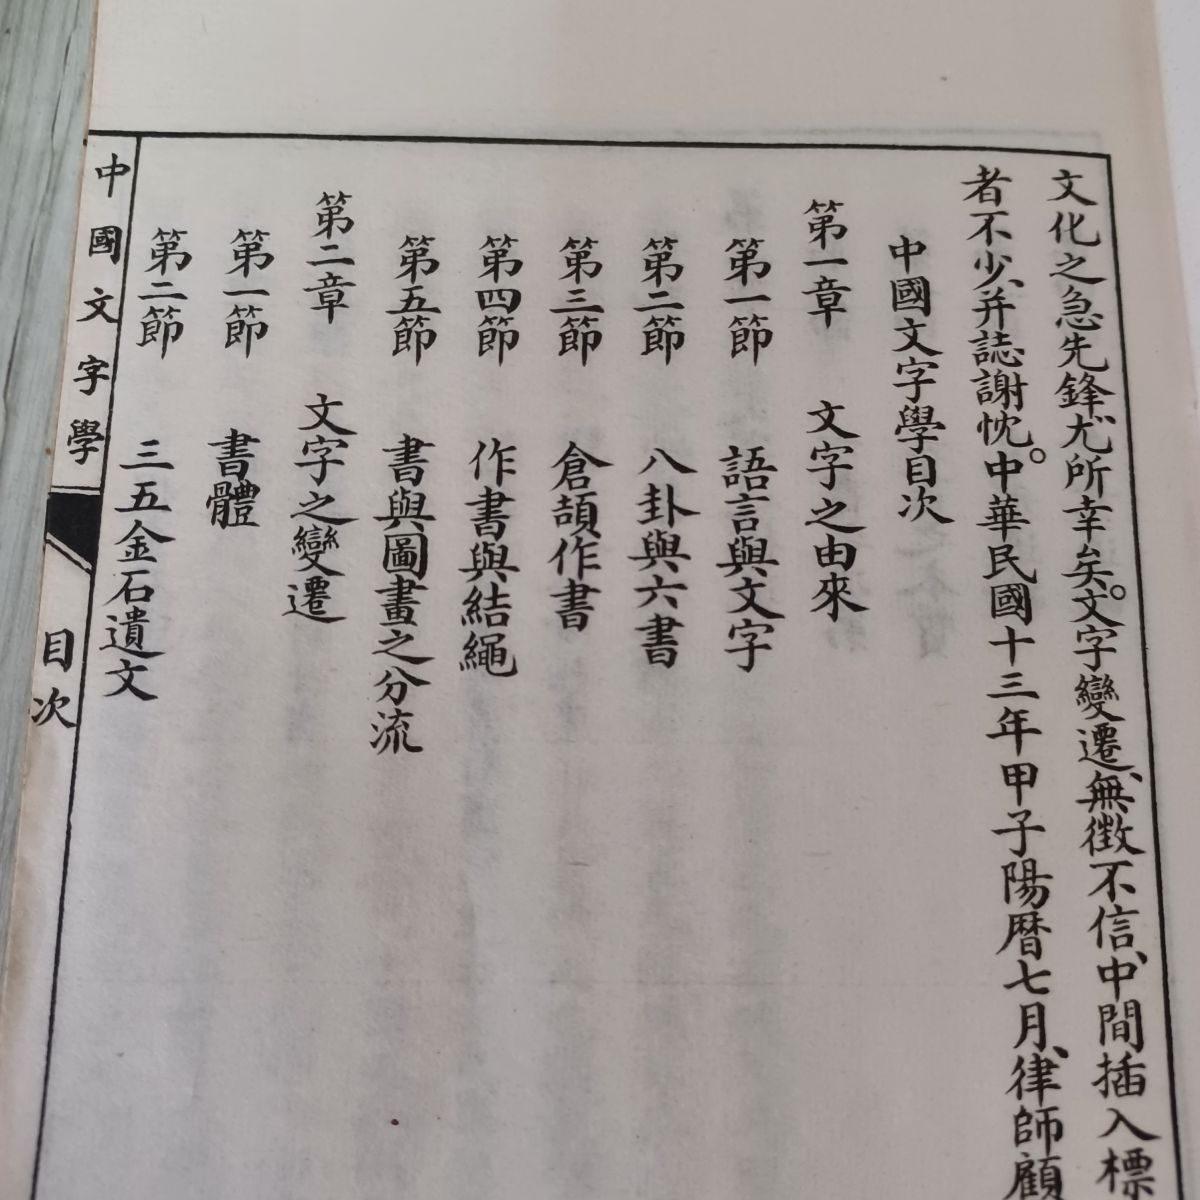 文化之急先鋒、尤所幸矣。文字變遷、無徵不信、中間插入標
者不少、并誌謝忱。中華民國十三年甲子陽曆七月、律師顧
中國文字學目次
第一章 文字之由來
第一節 語言與文字
第二節 八卦與六書
第三節 倉頡作書
第四節 作書與結繩
第五節 書與圖畫之分流
第二章 文字之變遷
第一節 書體
第二節 三五金石遺文
中國文字學 目次